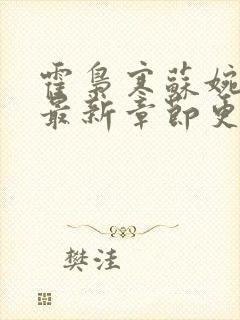 霍梟寒蘇婉
最新章節更
樊洼